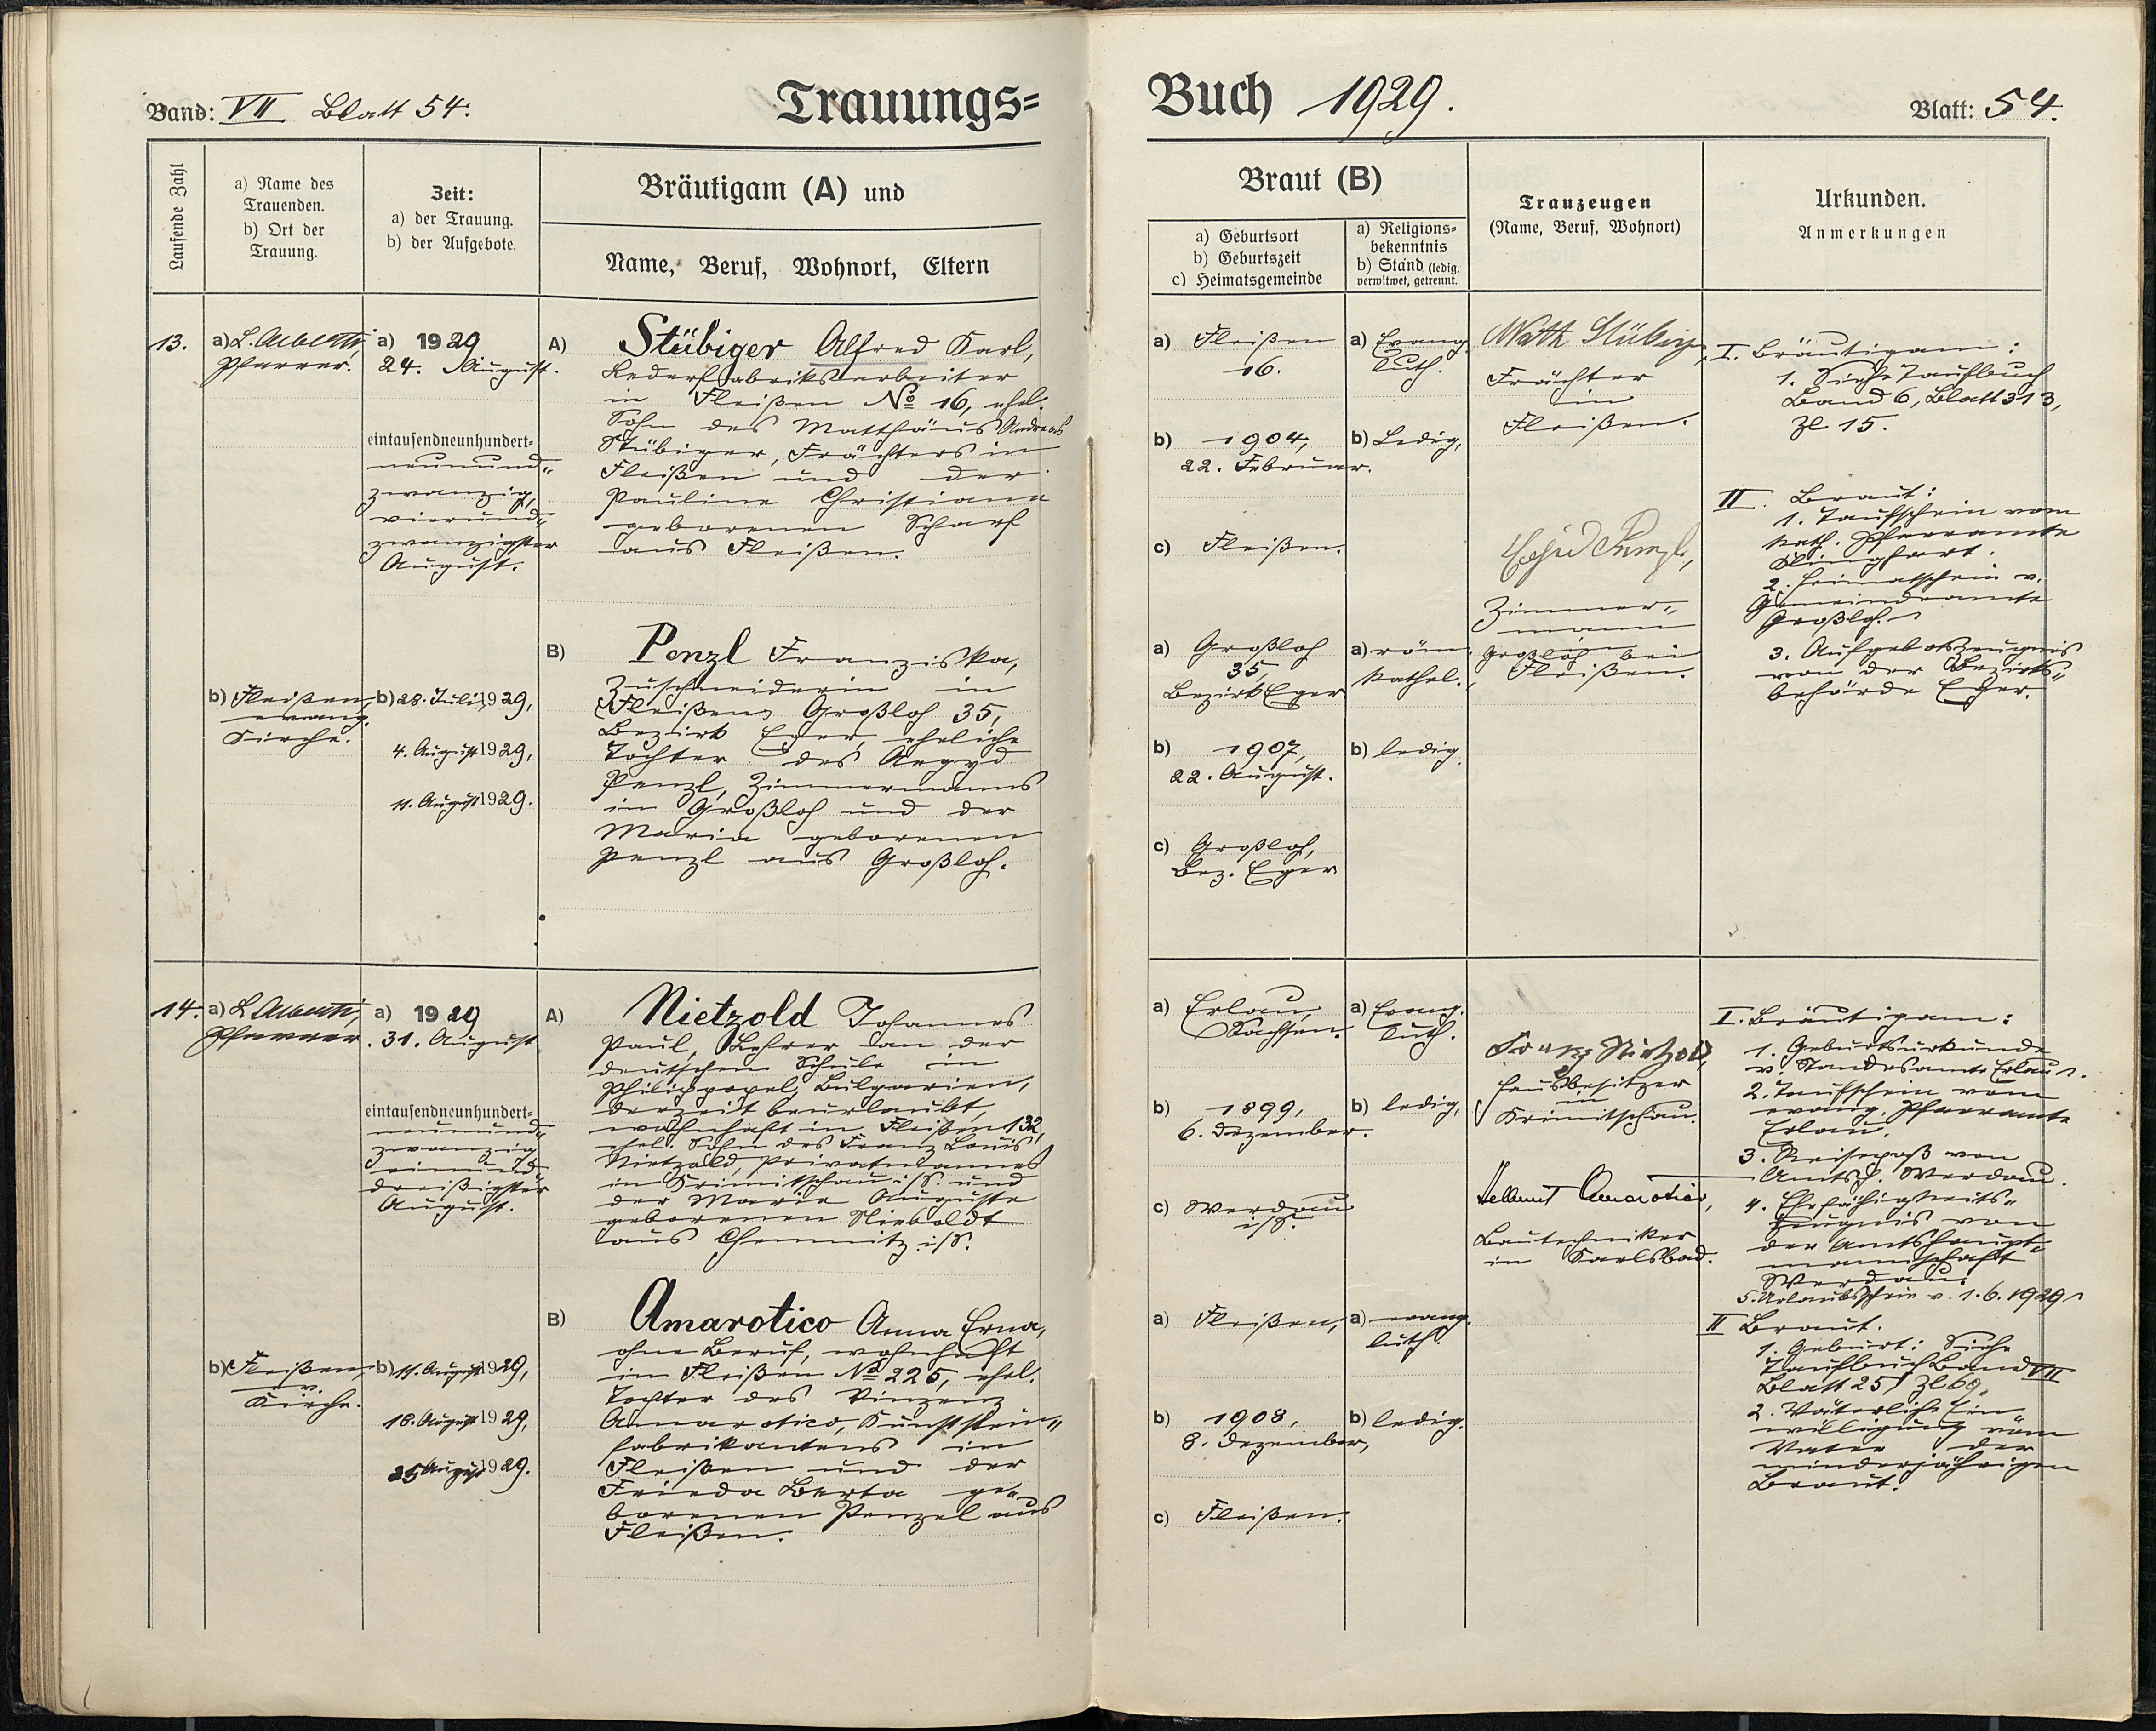 Band: VII Blatt 54.
Trauungs=
Laufende Zahl
a) Name des
Trauenden.
b) Ort der
Trauung.
Zeit:
a) der Trauung.
b) der Aufgebote.
Bräutigam (A) und
Name, Beruf, Wohnort, Eltern
13.
a) L. Alberti,
Pfarrer.
b) Fleißen,
evang.
Kirche.
a) 1929
24. August.
eintausendneunhundert-
neunund-
zwanzig,
vierund-
zwanzigster
August.
b) 28. Juli 1929,
4. August 1929,
11. August 1929.
A) Stübiger Alfred Karl,
Lederfabriksarbeiter
in Fleißen No 16, ehel.
Sohn des Matthäus Andreas
Stübiger, Frächters in
Fleißen und der
Pauline Christiana
geborenen Scharf
aus Fleißen.
B) Penzl Franziska,
Zuschneiderin in
Fleißen, Großloh 35,
Bezirk Eger, eheliche
Tochter des Aegyd
Penzl, Zimmermanns
in Großloh und der
Maria geborenen
Penzl aus Großloh.
14.
a) L. Alberti,
Pfarrer.
b) Fleißen,
ev.
Kirche.
a) 1929
31. August
eintausendneunhundert-
neunund-
zwanzig
einund-
dreißigster
August.
b) 11. August 1929,
18. August 1929,
25 August 1929.
A) Nietzold Johannes
Paul, Lehrer an der
deutschen Schule in
Philippopel, Bulgarien,
derzeit beurlaubt,
wohnhaft in Fleißen 132,
ehel. Sohn des Franz Louis
Nietzold, Privatmannes
in Krimitschau i/S. und
der Marie Auguste
geborenen Nieboldt
aus Chemnitz i/S.
B) Amarotico Anna Erna,
ohne Beruf, wohnhaft
in Fleißen No 225, ehel.
Tochter des Vinzenz
Amarotico, Kunststein-
fabrikantens in
Fleißen und der
Frieda Berta ge-
borenen Penzel aus
Fleißen.
Buch 1929.
Blatt: 54.
Braut (B)
a) Geburtsort
b) Geburtszeit
c) Heimatsgemeinde
a) Religions=
bekenntnis
b) Stand (ledig,
verwitwet, getrennt.
Trauzeugen
(Name, Beruf, Wohnort)
Urkunden.
Anmerkungen
a) Fleißen
16.
b) 1904,
22. Februar.
c) Fleißen.
a) Evang.
luth.
b) Ledig,
a) Großloh
35,
Bezirk Eger
b) 1907,
22. August.
c) Großloh,
Bez. Eger
a) röm.
kathol.
b) ledig.
Math Stübiger,
Frächter
in
Fleißen.
Egid Penzl,
Zimmer-
mann
Großloh bei
Fleißen.
I. Bräutigam:
1. Siehe Taufbuch
Band 6, Blatt 313,
Zl. 15.
II. Braut:
1. Taufschein vom
kath. Pfarramte
Klinghart.
2. Heimatschein v.
Gemeindeamte
Großloh.
3. Aufgebotszeugnis
von der Bezirks-
behörde Eger.
a) Erlau,
Sachsen.
b) 1899,
6. Dezember.
c) Werdau
i/S.
a) Evang.
luth.
b) ledig,
a) Fleißen,
b) 1908,
8. Dezember,
c) Fleißen.
a) evang.
luth.
b) ledig.
Franz Nietzold,
Hausbesitzer
in
Krimitschau.
Hellmut Amarotico,
Bautechniker
in Karlsbad.
I. Bräutigam:
1. Geburtsurkunde
v. Standesamte Erlau.
2. Taufschein vom
evang. Pfarramte
Erlau,
3. Reisepaß von
Amtsh. Werdau.
4. Ehefähigkeits-
zeugnis von
der Amtshaupt-
mannschaft
Werdau.
5. Urlaubsschein v. 1.6.1929.
II Braut.
1. Geburt: Siehe
Taufbuch Band VII
Blatt 251 Zl 69.
2. Väterliche Ein-
willigung vom
Vater der
minderjährigen
Braut.